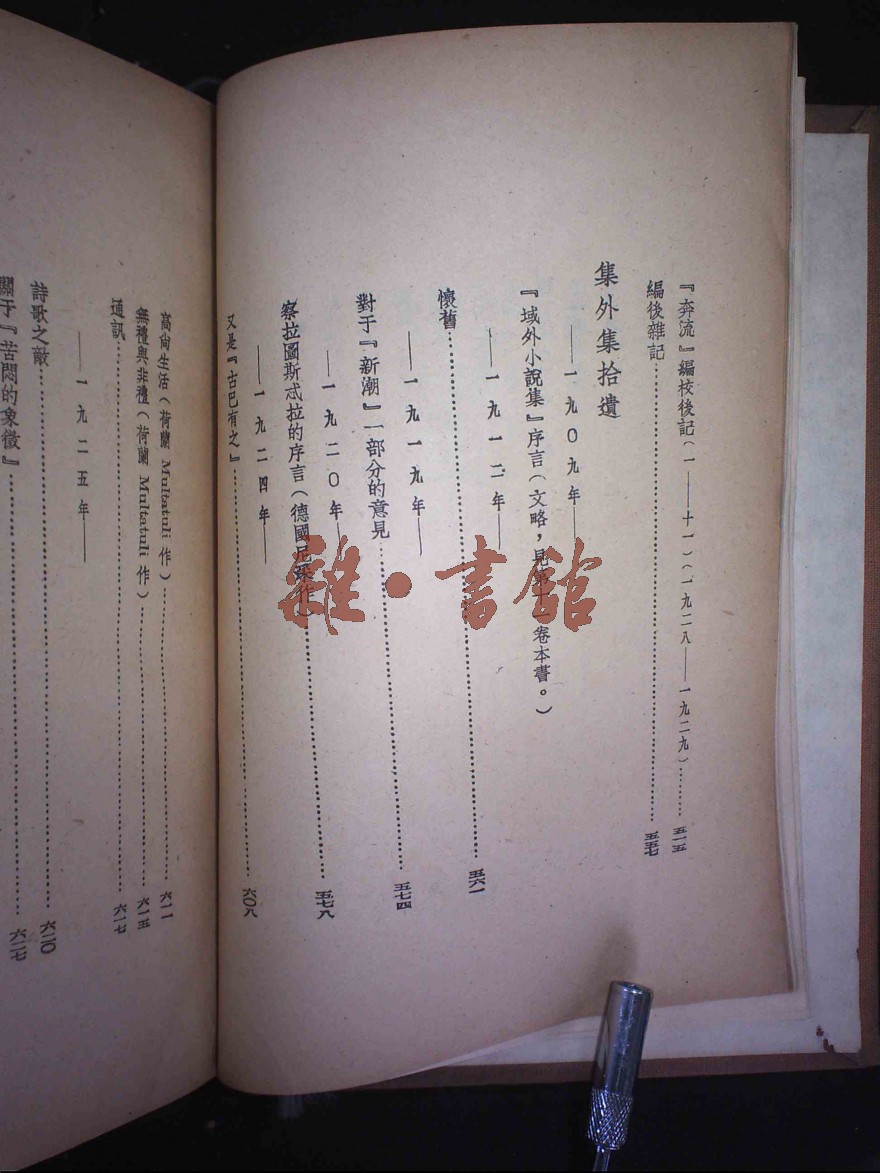 『奔流』編校後記(一——十一)(一九二八——一九二九)…………五一五
編後雜記…………五五七
集外集拾遺
——一九〇九年——
『域外小說集』序言(文略,見第十一卷本書。)
——一九一二年——
懷舊…………五六一
——一九一九年——
對于『新潮』一部分的意見…………五七四
——一九二〇年——
察拉圖斯忒拉的序言(德國尼采作)…………五七八
——一九二四年——
又是『古已有之』…………六〇八
高尚生活(荷蘭 Multatuli 作)…………六一一
無禮與非禮(荷蘭 Multatuli 作)…………六一五
通訊…………六一七
——一九二五年——
詩歌之敵…………六二〇
關于『苦悶的象徵』…………六二七
雜·書館